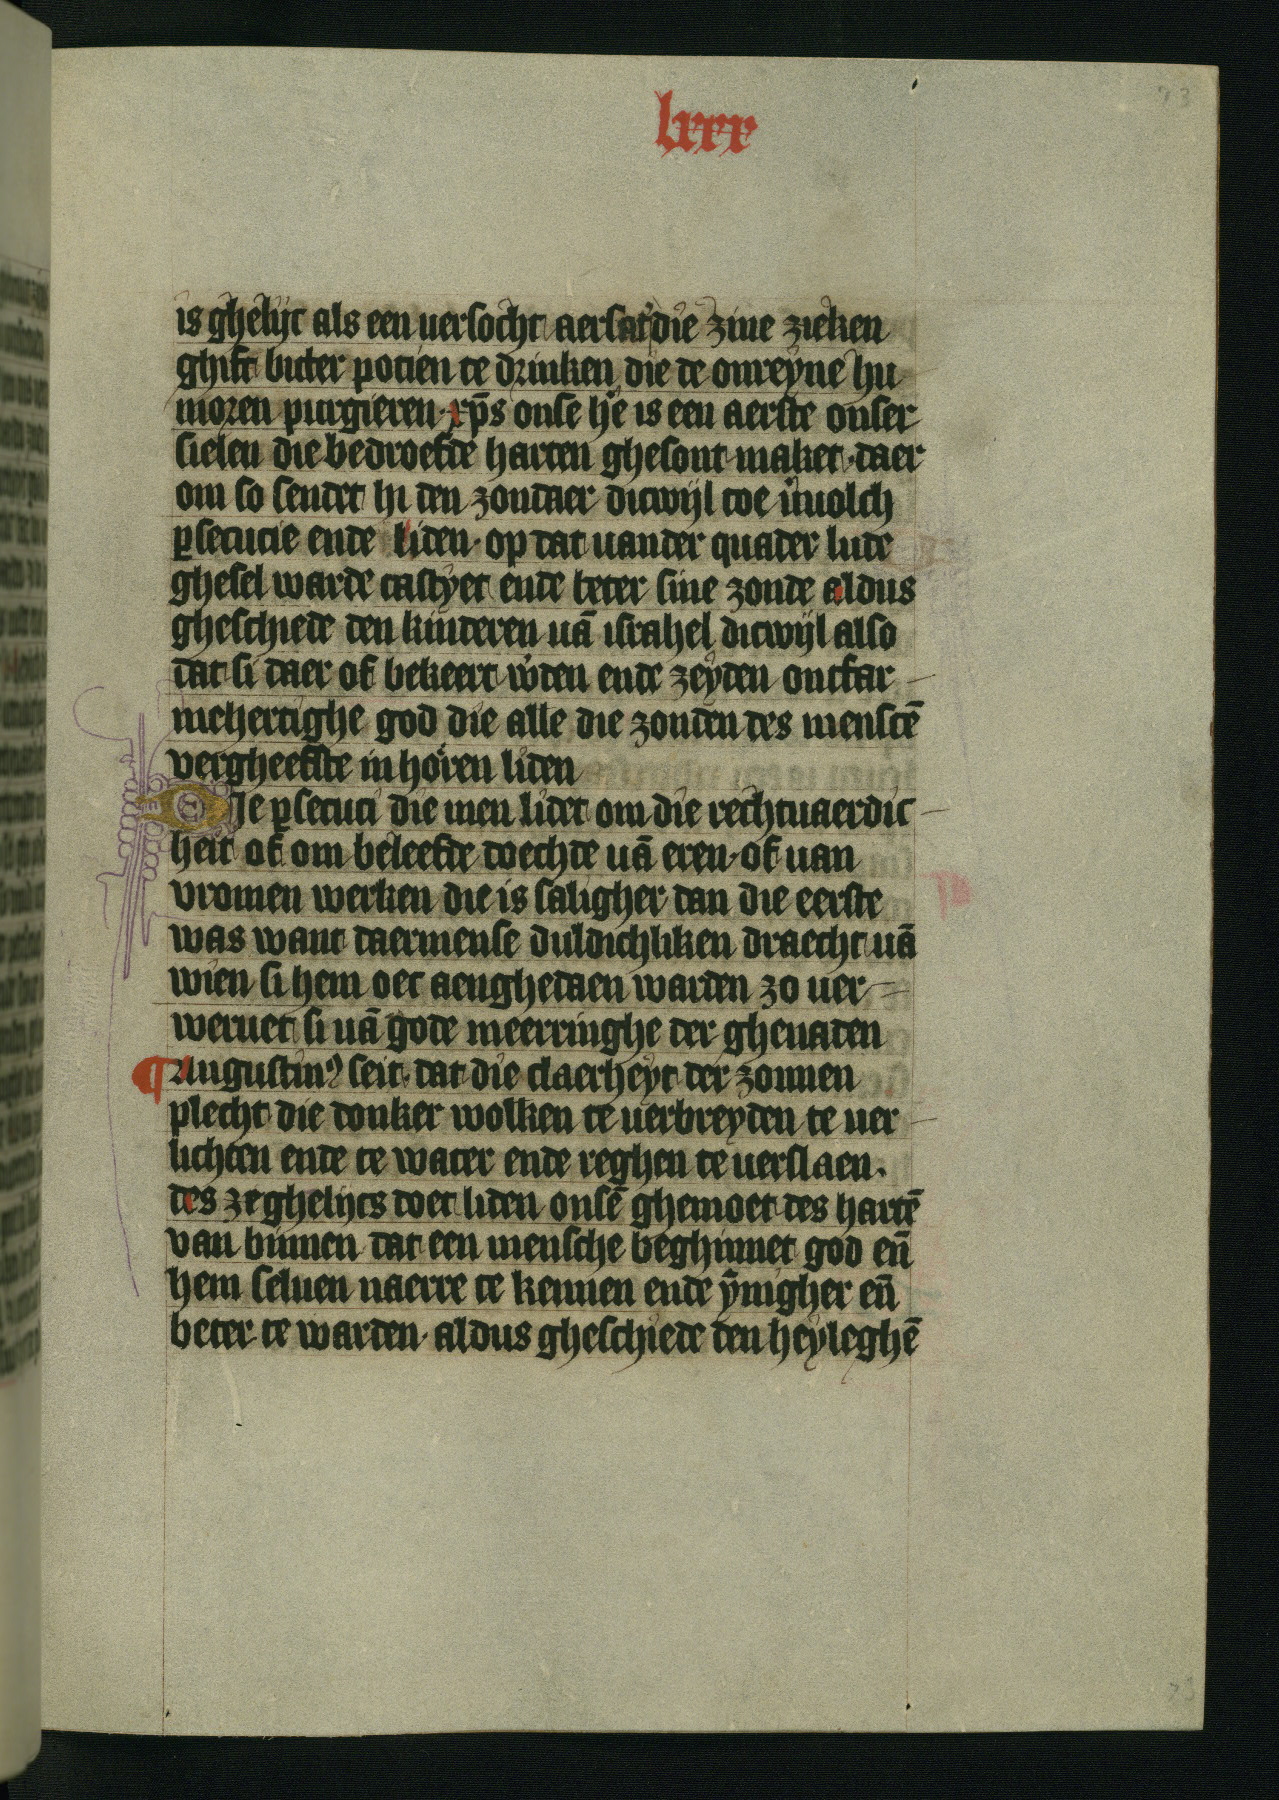 lxxx
73
is ghelijc als een versocht aersat die zine zieken
ghift bitter potien te drinken die de onreyne hu
moren purgieren. xp̄s onse he is een aerste onser
sielen die bedroefde harten ghesont maket. daer
om so sendet hi den zondaer dicwijl toe involch
ꝑsecucie ende liden. op dat vander quader lude
ghesel warde castyet ende beter sine zonde aldus
gheschiede den kinderen vā israhel dicwijl also
dat si daer of bekeert wden ende zeyden ontfar
mehertighe god die alle die zonden des menscē
vergheefste in horen liden
Die ꝑsecuci die men lidet om die rechtuaerdic
heit of om beleefde doechde vā eren. of van
vromen werken die is saligher dan die eerste
was want daermense duldichliken draecht vā
wien si hem oec aenghedaen warden zo ver
wervet si vā gode meerringhe der ghenaden
¶ Augustinꝰ seit. dat die claerheyt der zonnen
plecht die donker wolken te verbreyden te ver
lichten ende te water ende reghen te verslaen.
des zeghelijcs doet liden onsē ghemoet des hartē
van binnen dat een mensche beghinnet god eñ
hem selven naerre te kennen ende ȳnigher eñ
beter te warden. aldus gheschiede den heyleghē
73